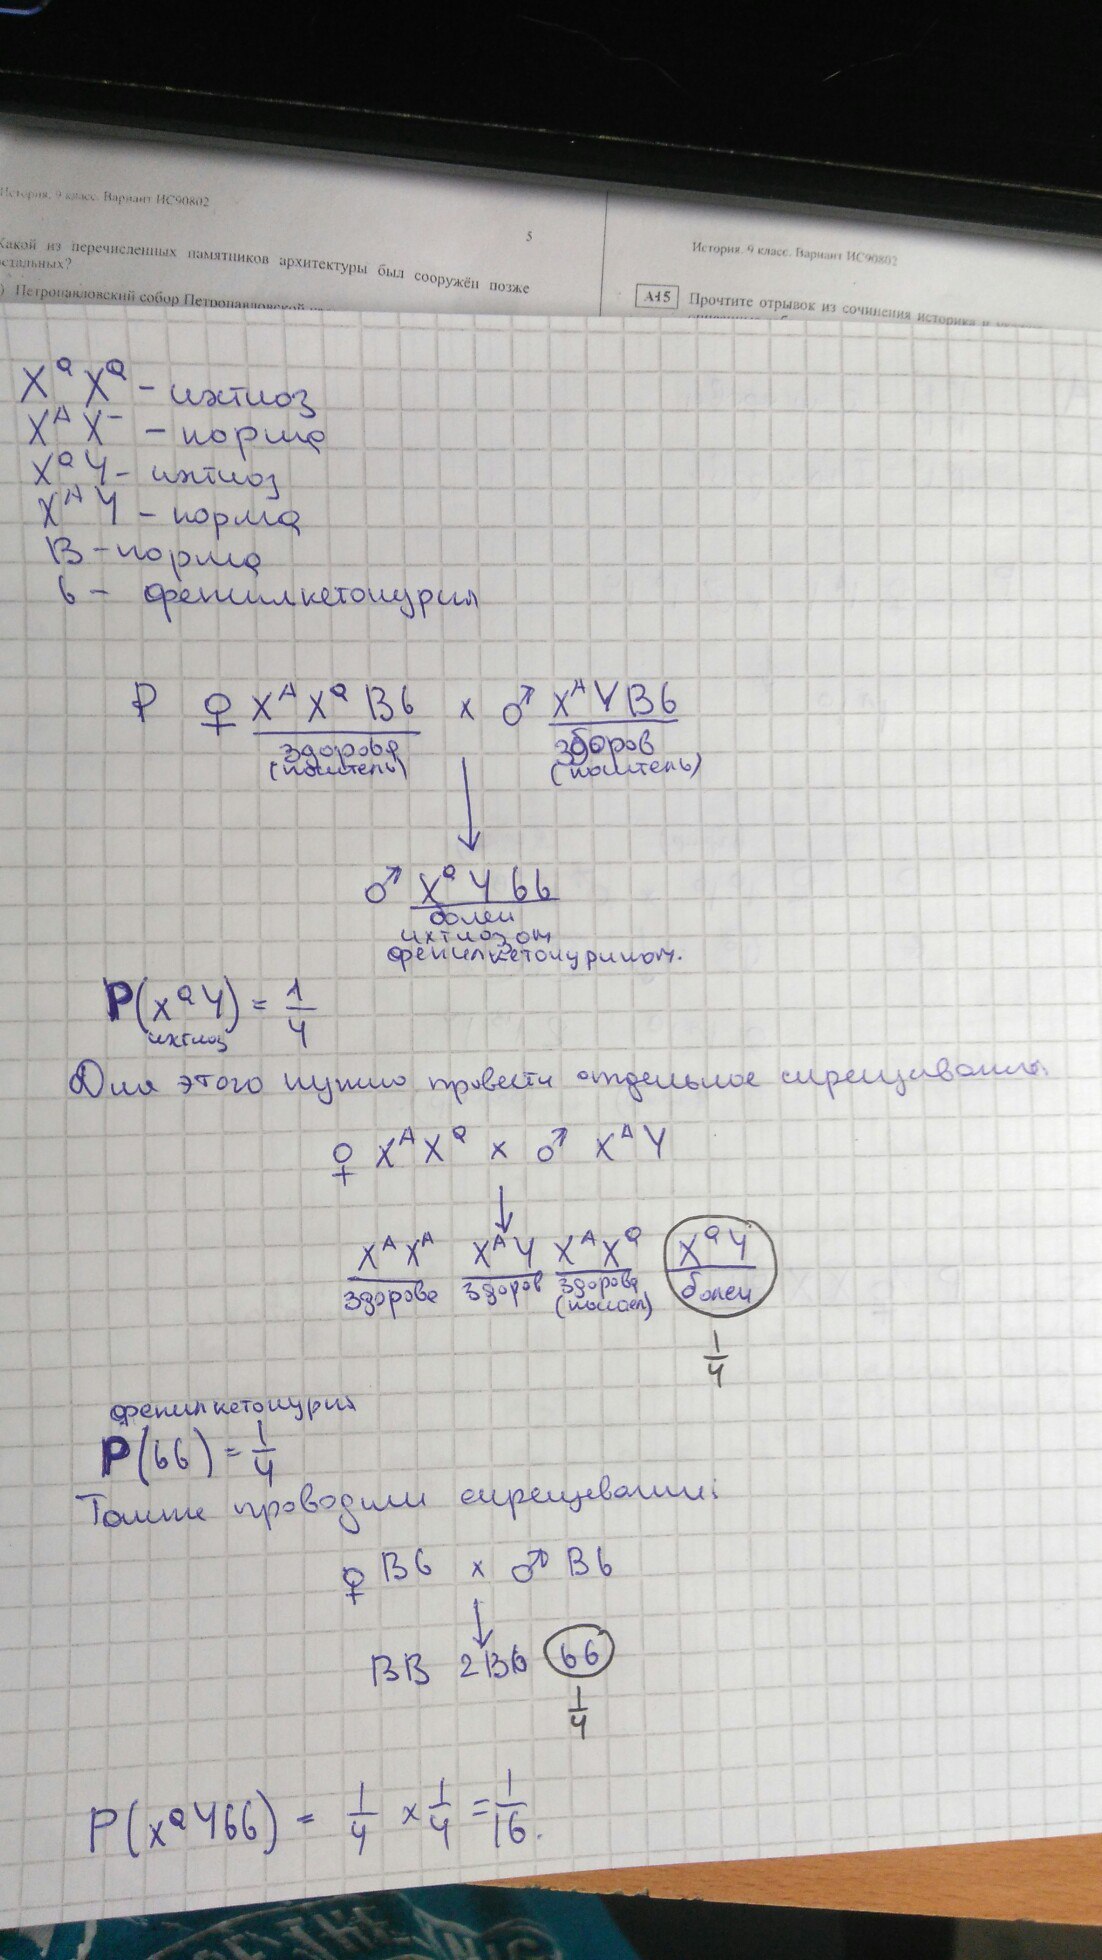 История. 9 класс. Вариант ИС90802
5
Какой из перечисленных памятников архитектуры был сооружён позже
остальных?
) Петропавловский собор Петропавловской
История. 9 класс. Вариант ИС90802
А15 Прочтите отрывок из сочинения историка и
XᵃXᵃ - ихтиоз
XᴬX⁻ - норма
XᵃY - ихтиоз
XᴬY - норма
B - норма
b - фенилкетонурия
P ♀ XᴬXᵃBb x ♂ XᴬYBb
здорова здоров
(носитель) (носитель)
♂ XᵃYbb
болен
ихтиозом
фенилкетонурином.
P(XᵃY) = 1/4
ихтиоз
Для этого нужно провести отдельное скрещивание
♀ XᴬXᵃ x ♂ XᴬY
XᴬXᴬ XᴬY XᴬXᵃ XᵃY
здорова здоров здорова болен
(носител)
1/4
фенилкетонурия
P(bb) = 1/4
Также проводим скрещевание:
♀ Bb x ♂ Bb
BB 2Bb bb
1/4
P(XᵃYbb) = 1/4 x 1/4 = 1/16.
OF THE